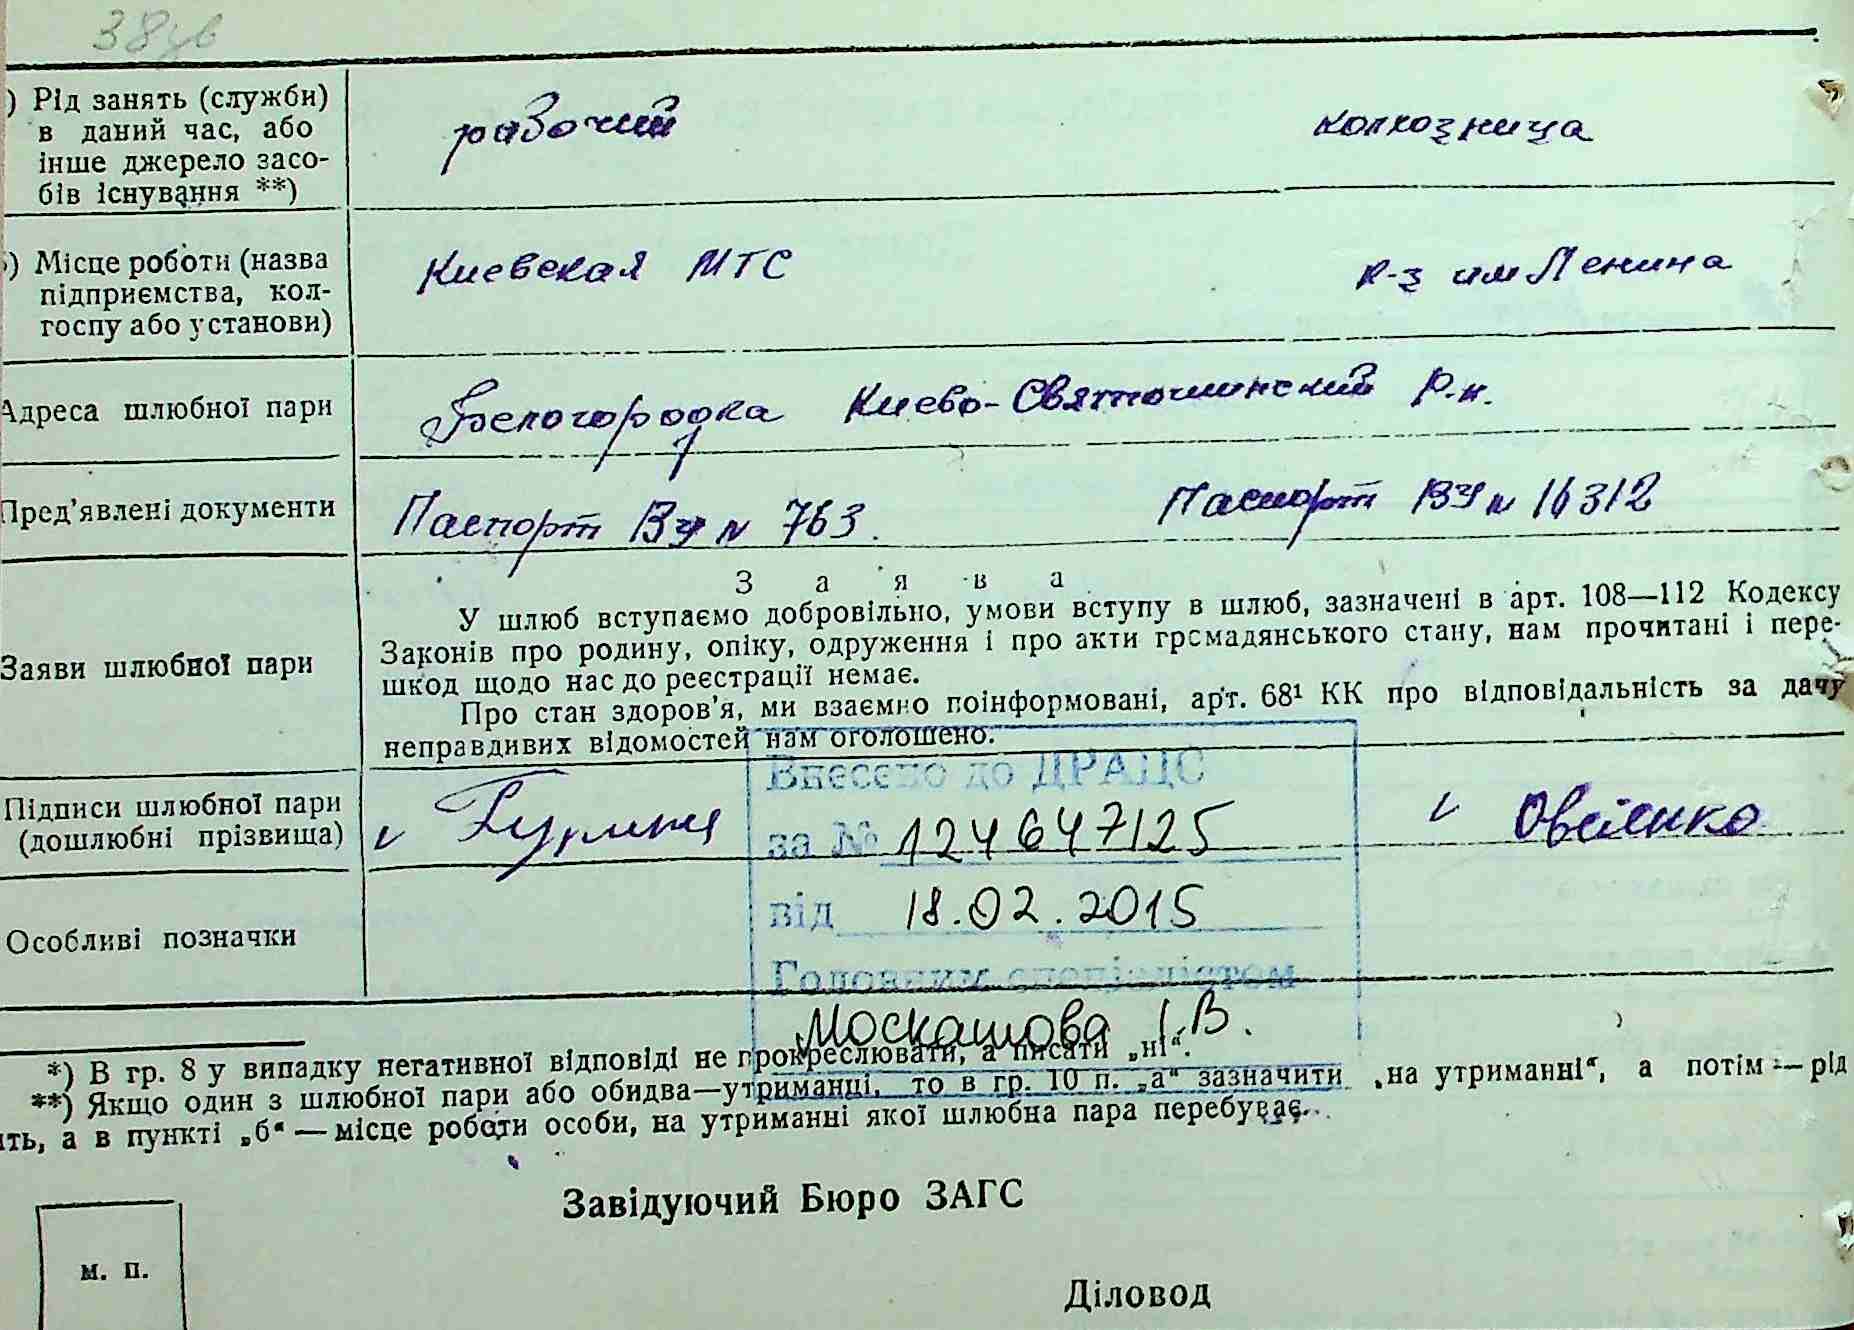 38зв
) Рід занять (служби) в даний час, або інше джерело засобів існування **)
рабочий
колхозница
) Місце роботи (назва підприємства, колгоспу або установи)
Киевская МТС
к-з им Ленина
Адреса шлюбної пари
Белогородка Киево-Святошинский р-н.
Пред’явлені документи
Паспорт ВУ N 763.
Паспорт ВУ N 16312
Заява
У шлюб вступаємо добровільно, умови вступу в шлюб, зазначені в арт. 108—112 Кодексу
Законів про родину, опіку, одруження і про акти громадянського стану, нам прочитані і пере-
шкод щодо нас до реєстрації немає.
Про стан здоров’я, ми взаємно поінформовані, арт. 68¹ КК про відповідальність за дачу
неправдивих відомостей нам оголошено.
Заяви шлюбної пари
Внесено до ДРАЦС
Підписи шлюбної пари
(дошлюбні прізвища)
за № 124647125
Овсіенко
від 18.02.2015
Особливі позначки
Головним спеціалістом
Москашова І.В.
*) В гр. 8 у випадку негативної відповіді не прокреслювати, а писати „ні“.
**) Якщо один з шлюбної пари або обидва—утриманці, то в гр. 10 п. „а“ зазначити „на утриманні“, а потім — рід
ять, а в пункті „б“ — місце роботи особи, на утриманні якої шлюбна пара перебуває.
Завідуючий Бюро ЗАГС
м. п.
Діловод